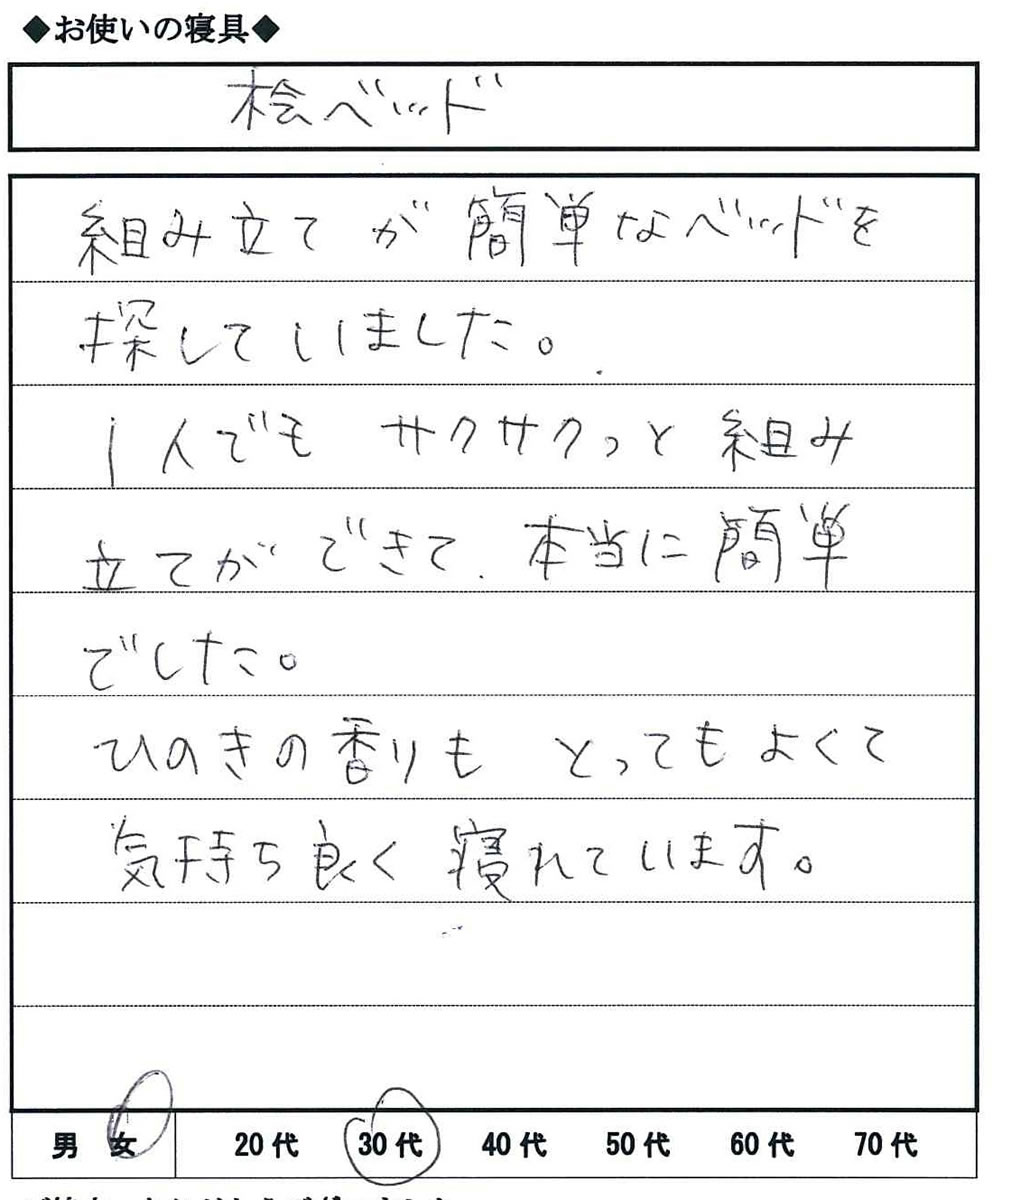 ◆お使いの寝具◆
桧ベッド
組み立てが簡単なベッドを
探していました。
1人でも サクサクっと組み
立てができて、本当に簡単
でした。
ひのきの香りも とってもよくて
気持ち良く寝れています。
男 女 20代 30代 40代 50代 60代 70代